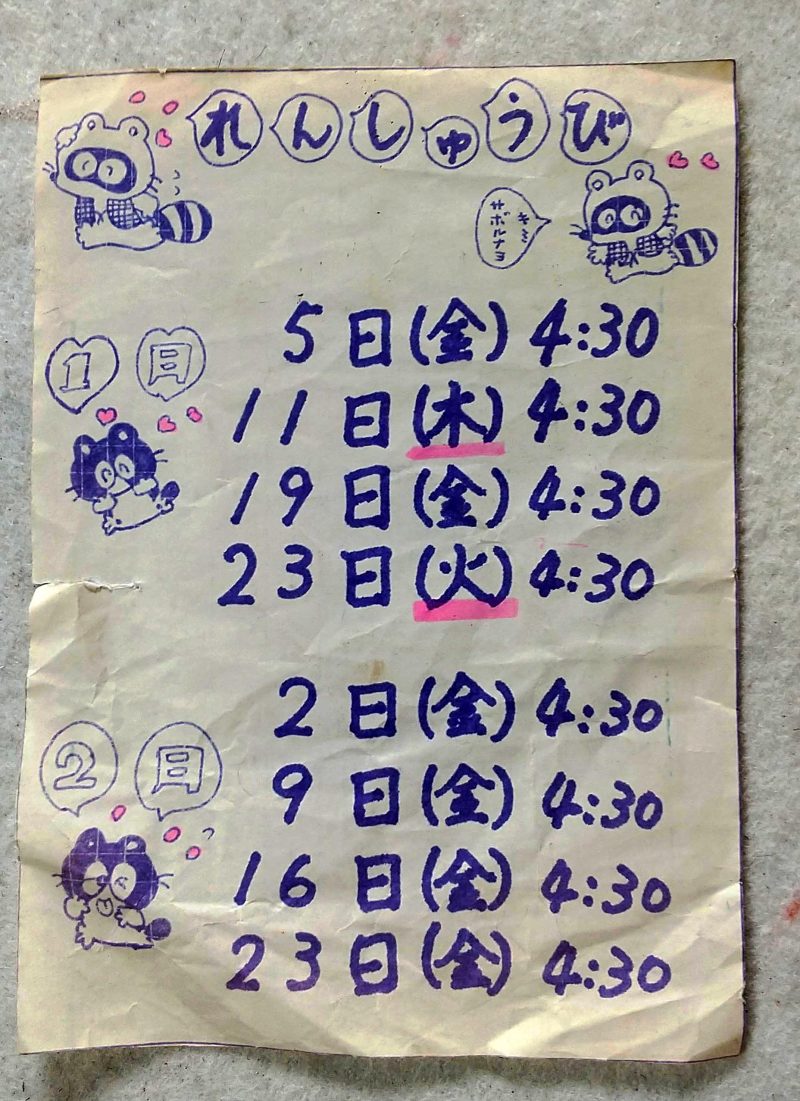 れんしゅうび
キミ
サボルナヨ
1月
5日(金) 4:30
11日(木) 4:30
19日(金) 4:30
23日(火) 4:30
2月
2日(金) 4:30
9日(金) 4:30
16日(金) 4:30
23日(金) 4:30